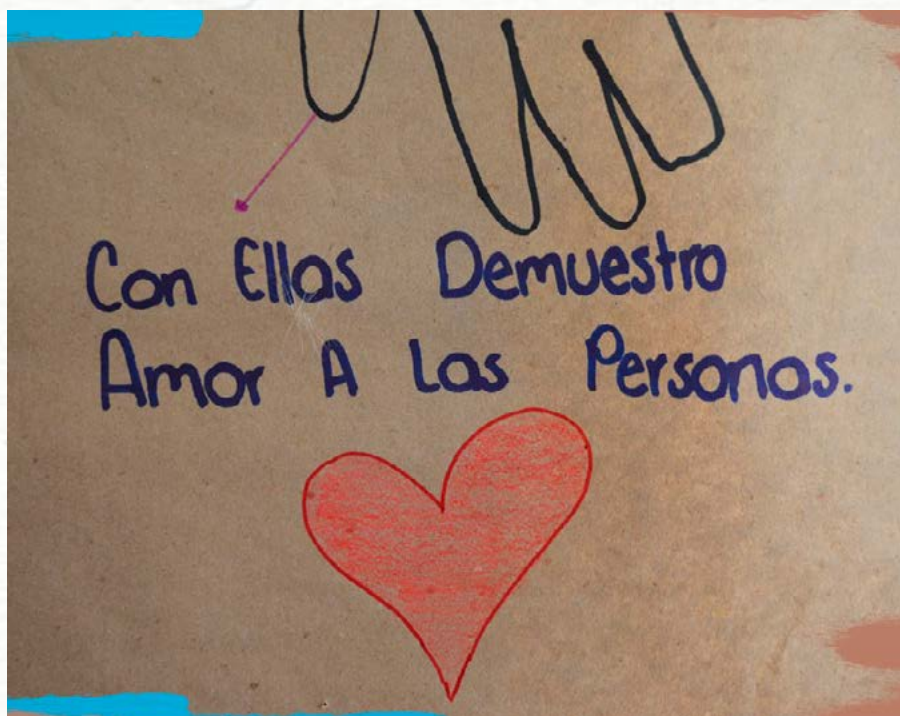 Con Ellas Demuestro
Amor A Las Personas.